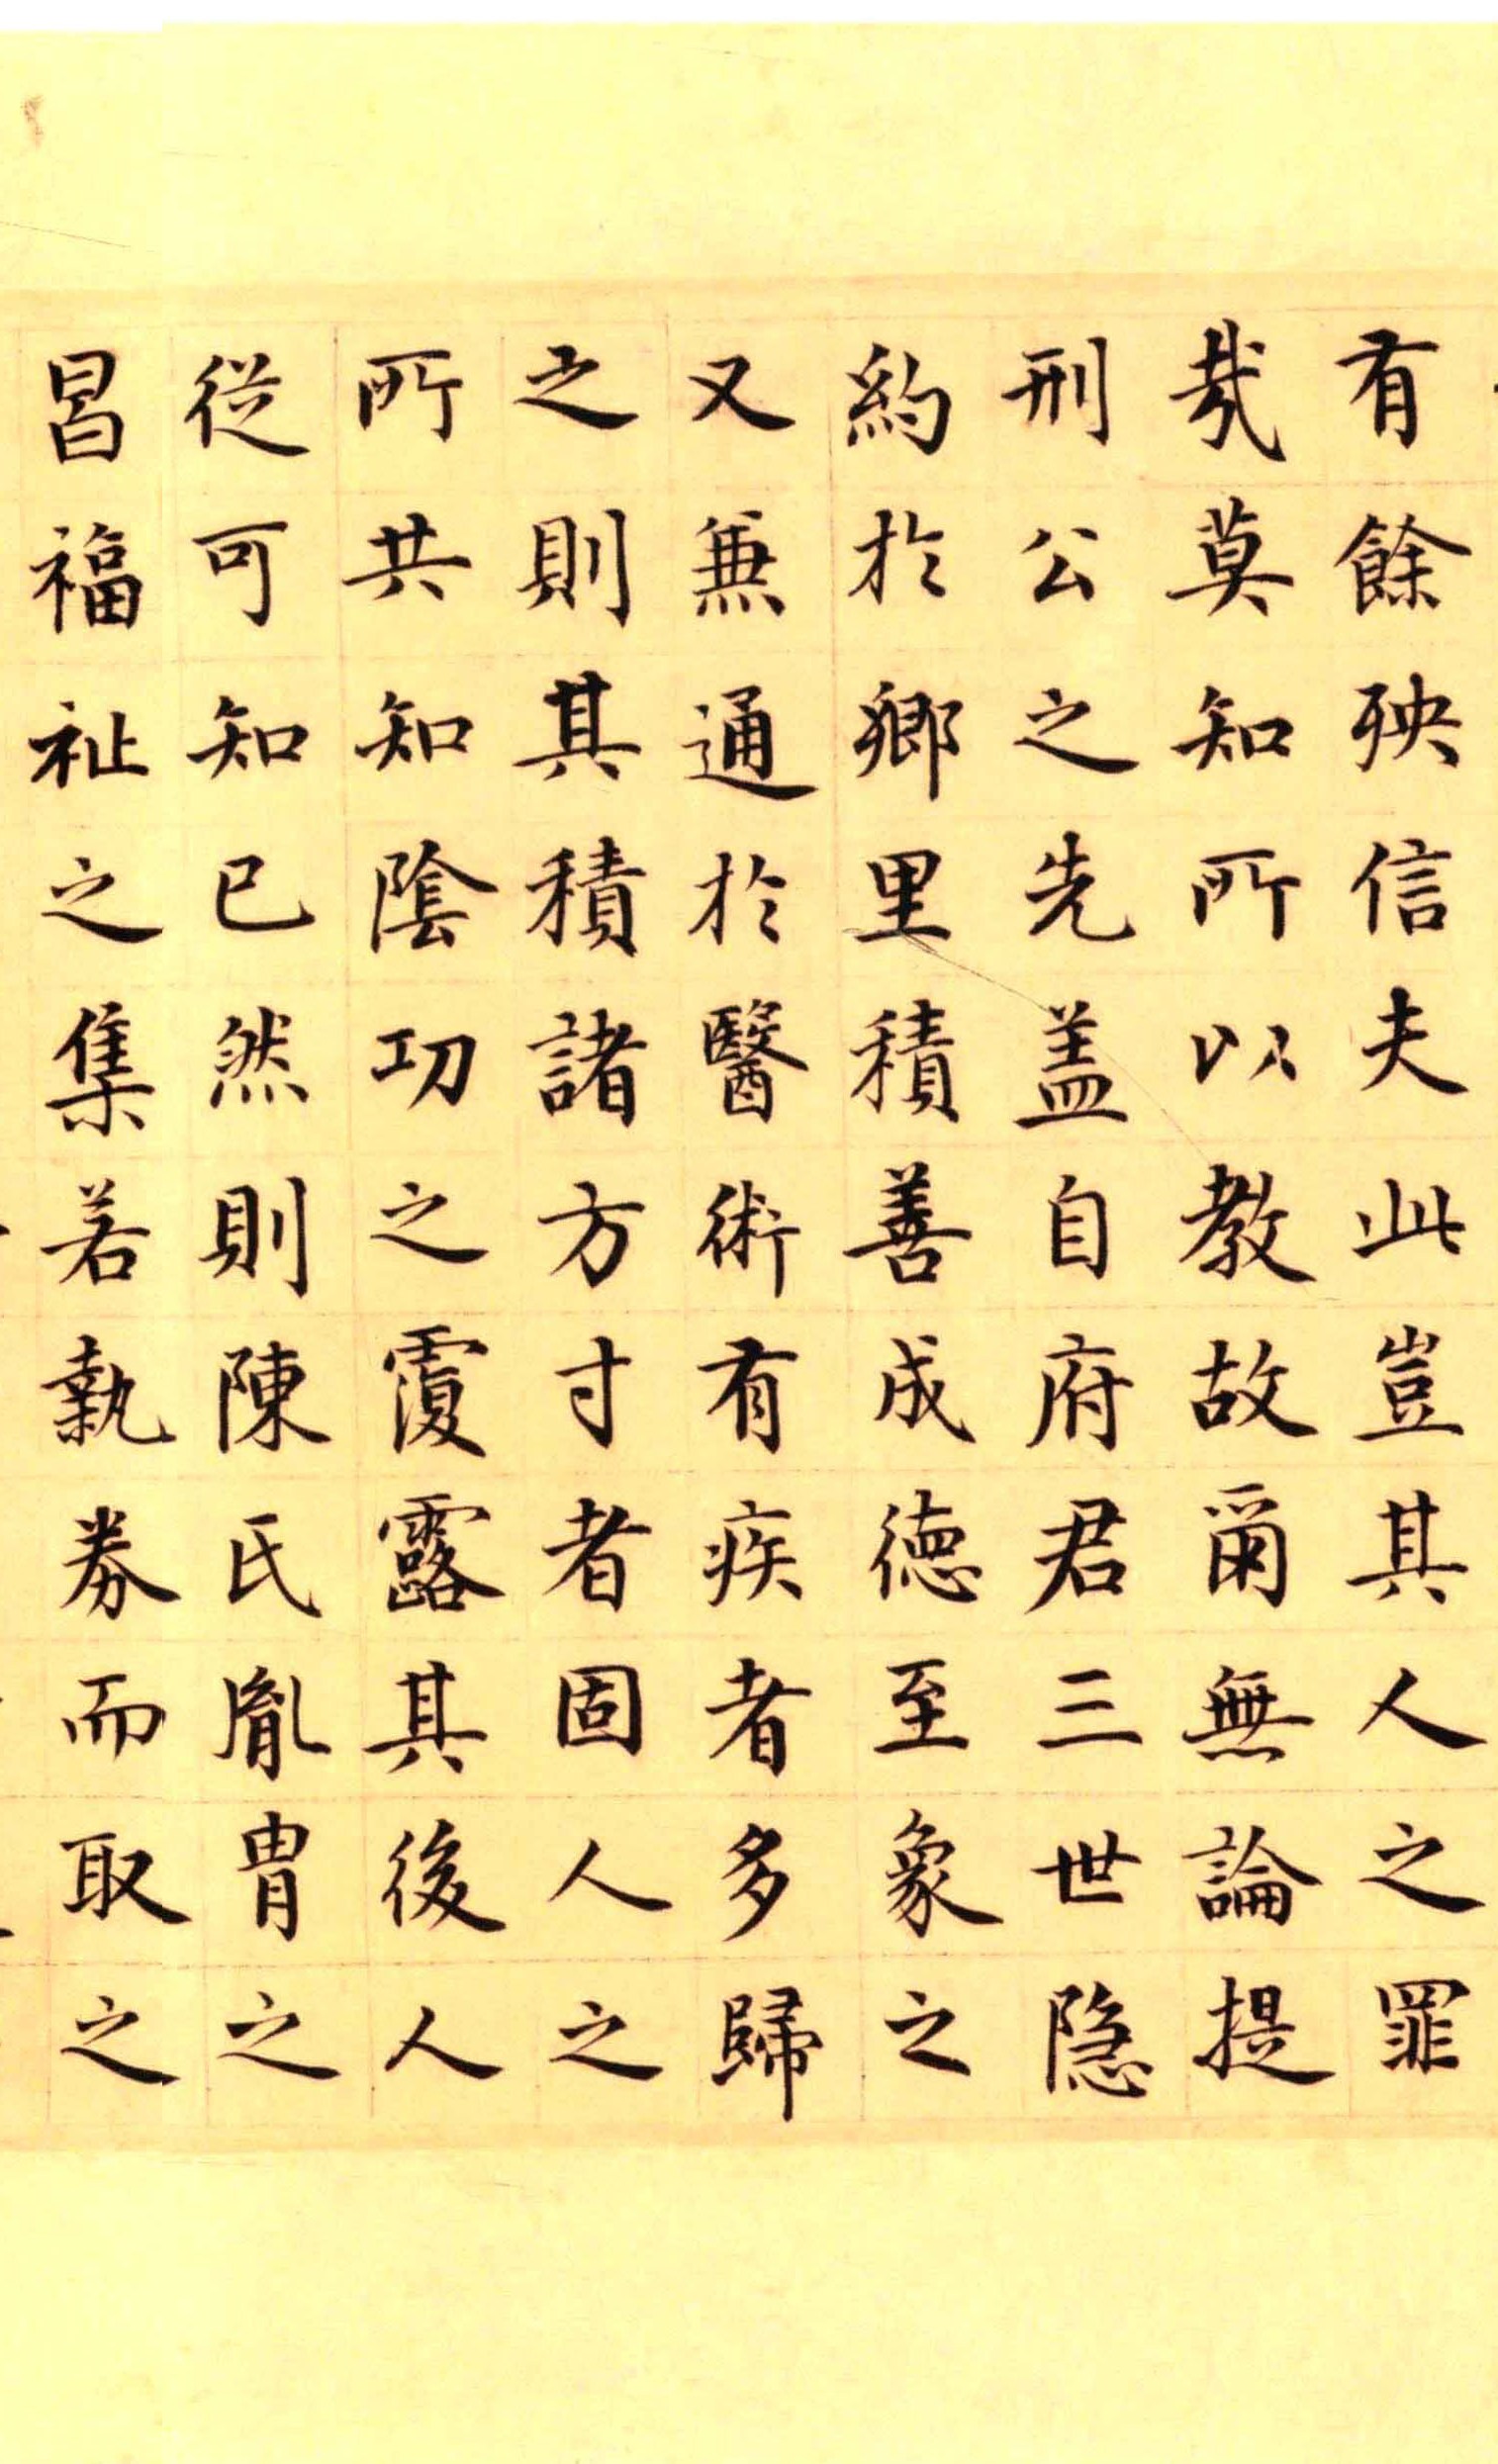 有餘殃信夫此豈其人之罪
哉莫知所以教故爾無論提
刑公之先盖自府君三世隐
約於鄉里積善成德至象之
又兼通於醫術有疾者多歸
之則其積諸方寸者固人之
所共知陰功之覆露其後人
從可知已然則陳氏胤胄之
昌福祉之集若執券而取之